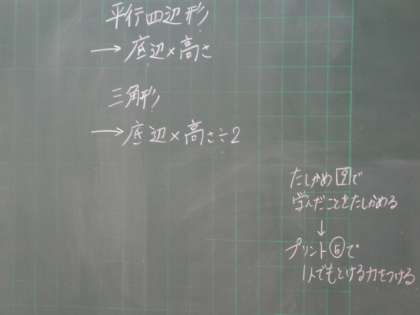 平行四辺形
→底辺×高さ
三角形
→底辺×高さ÷2
たしかめ で
学んだことをたしかめる
↓
プリント⑤で
1人でもとける力をつける